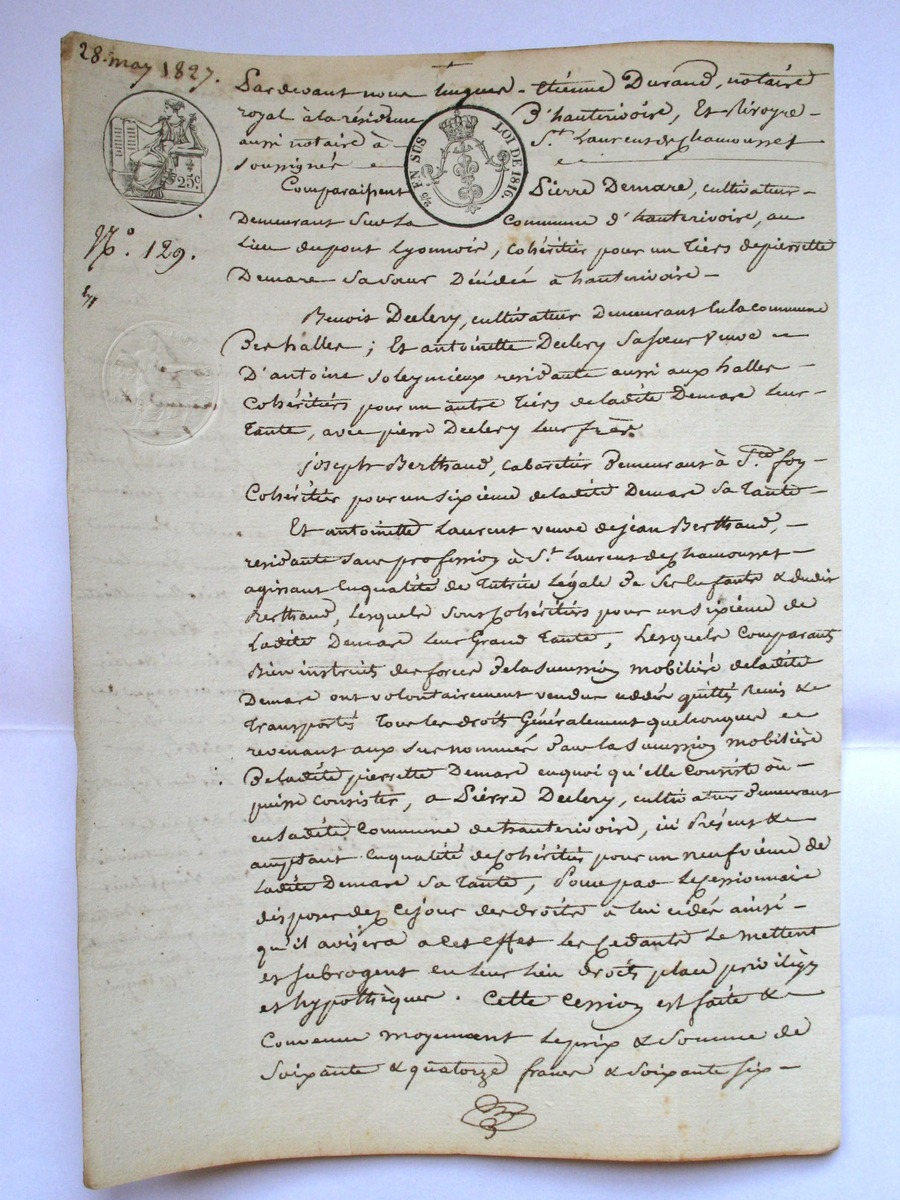 28. may 1827.
Pardevant nous hugues-étienne Durand, notaire
royal à la résidence D'hauterivoire, Et
aussi notaire à St. Laurent de chamousset
soussignés
25c.
2/10 EN SUS
LOI DE 1816.
Comparaissent Pierre Demare, cultivateur
Demeurant Sur La Commune d'hauterivoire, au
Lieu du pont Lyonnois, Cohéritier pour un tiers de pierrette
No. 129.
Demare Sa Sœur Décédée à hauterivoire
Benoit Declery, cultivateur Demeurant la commune
Des halles; Et antoinette Declery Sa sœur Veuve
D'antoine Soleymieux residante aussi aux halles
Cohéritiers pour un autre tiers de ladite Demare Leur
Tante, avec pierre Declery Leur frère
joseph Berthaud, cabaretier Demeurant à Ste. foy
Cohéritier pour un sixième de ladite Demare Sa Tante
Et antoinette Laurent veuve de jean Berthaud,
residante Sans profession à St. Laurent de chamousset
agissant En qualité de Tutrice Légale De Ses Enfants & dudit
Berthaud, Lesquels Sont Cohéritiers pour un sixième de
Ladite Demare Leur Grand Tante, Lesquels Comparants
Bien instruits des forces De la Succession mobilière de ladite
Demare ont volontairement vendu cédé quitté Remis &
Transportés Tous les droits Généralement quelconques
revenant aux susnommés Dans la Succession mobilière
De ladite pierrette Demare en quoi qu'elle Consiste où
puisse Consister, a Pierre Declery, cultivateur Demeurant
en Sadite Commune de hauterivoire, ici Présent &
acceptant En qualité de Cohéritier pour un neufvième de
Ladite Demare Sa Tante, Pour par Le Cessionnaire
disposer dez Cejour des droits à lui cédés ainsi
qu'il avisera a cet effet les Cedants Le mettent
et subrogent en Leur Lieu droits place priviléges
et hypothèques. Cette Cession est faite &
Convenue moyennant Le prix & Somme de
Soixante & quatorze francs & soixante six